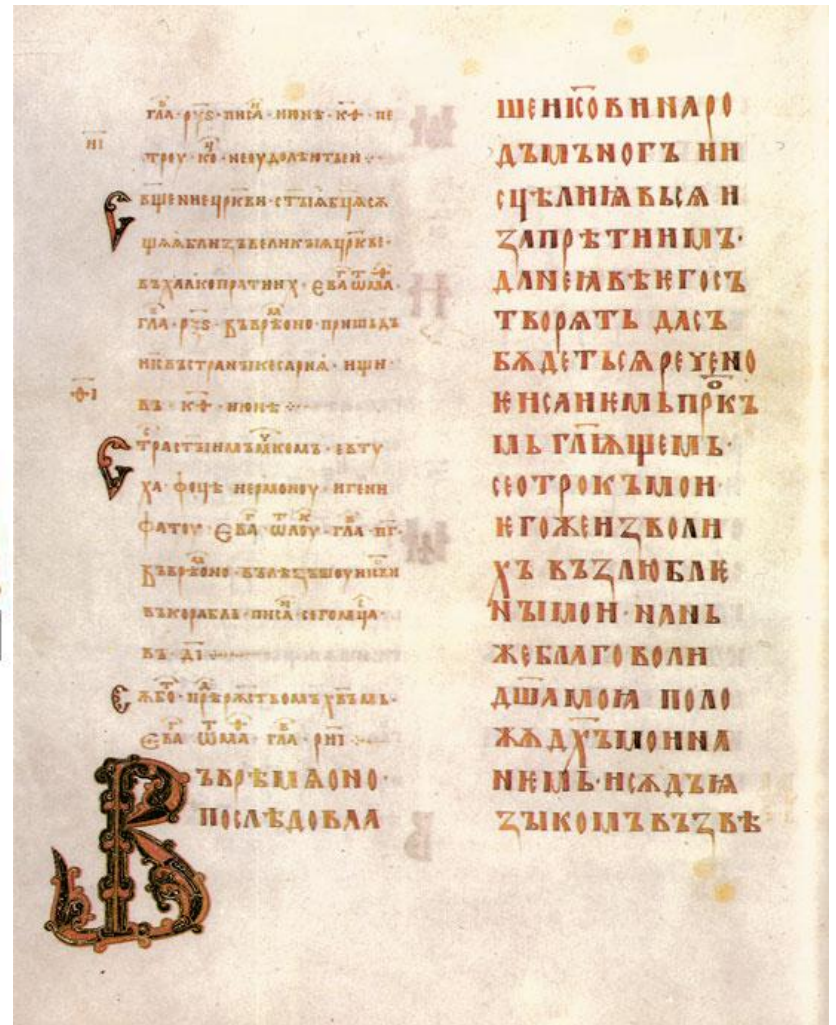 гла· рч҃ѕ· писа· июнѣ· к҃ѳ· пе
н҃і
троу· ко· неоудолѣютьеи·:·
Е вщениецркви· ст҃ыѩбц҃ѧсѫ
щѧѩблизъвеликыѩцркве·
въхалкопратиих· ЕВА ѾМАѲ·
гла· рч҃ѕ· Въврѣоно· пришьдъ
ис҃въстраныкесариѩ· ищи·
ѳ҃і
въ к҃ѳ· июнѣ·:·
С трастыимъмчкомъ· евту
ха· фоцѣ иермоноу· игеин
фатоу· ЕВА Ѿ лоу· гла· п҃г·
Въврѣоно· вълѣзъшоуис҃ви
въкорабль· писа· сегомц҃а·
въ д҃і
Сѫбо· прѣржствомъхв҃ъмь·
ЕВА Ѿ МАѲ· гла· рн҃і·:·
Въврѣмѧоно·
послѣдовла
шеисовинаро
дъмъногъ ии
сцѣлиꙗвьсѧ и
запрѣтиимъ·
данеꙗвѣѥгосъ
творѧть дасъ
бѫдетьсѧречено
ѥисаиѥмьпрⷪкъ
мь гл҃ѭщемь·
сеотрокъмои·
ѥгожеизволи
хъ възлюблѥ
нъімои· нань
жеблаговоли
дш҃амоꙗ поло
жѫдх҃ъмоина
ниѥмь· исѫдъꙗ
зꙑкомъвъзвѣ